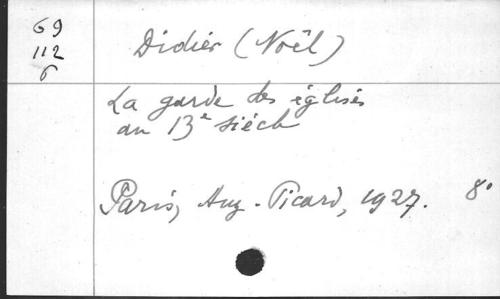 69
112
6
Didier (Noël)
La garde des églises
au 13e siècle
Paris, Aug. Picard, 1927. 8°